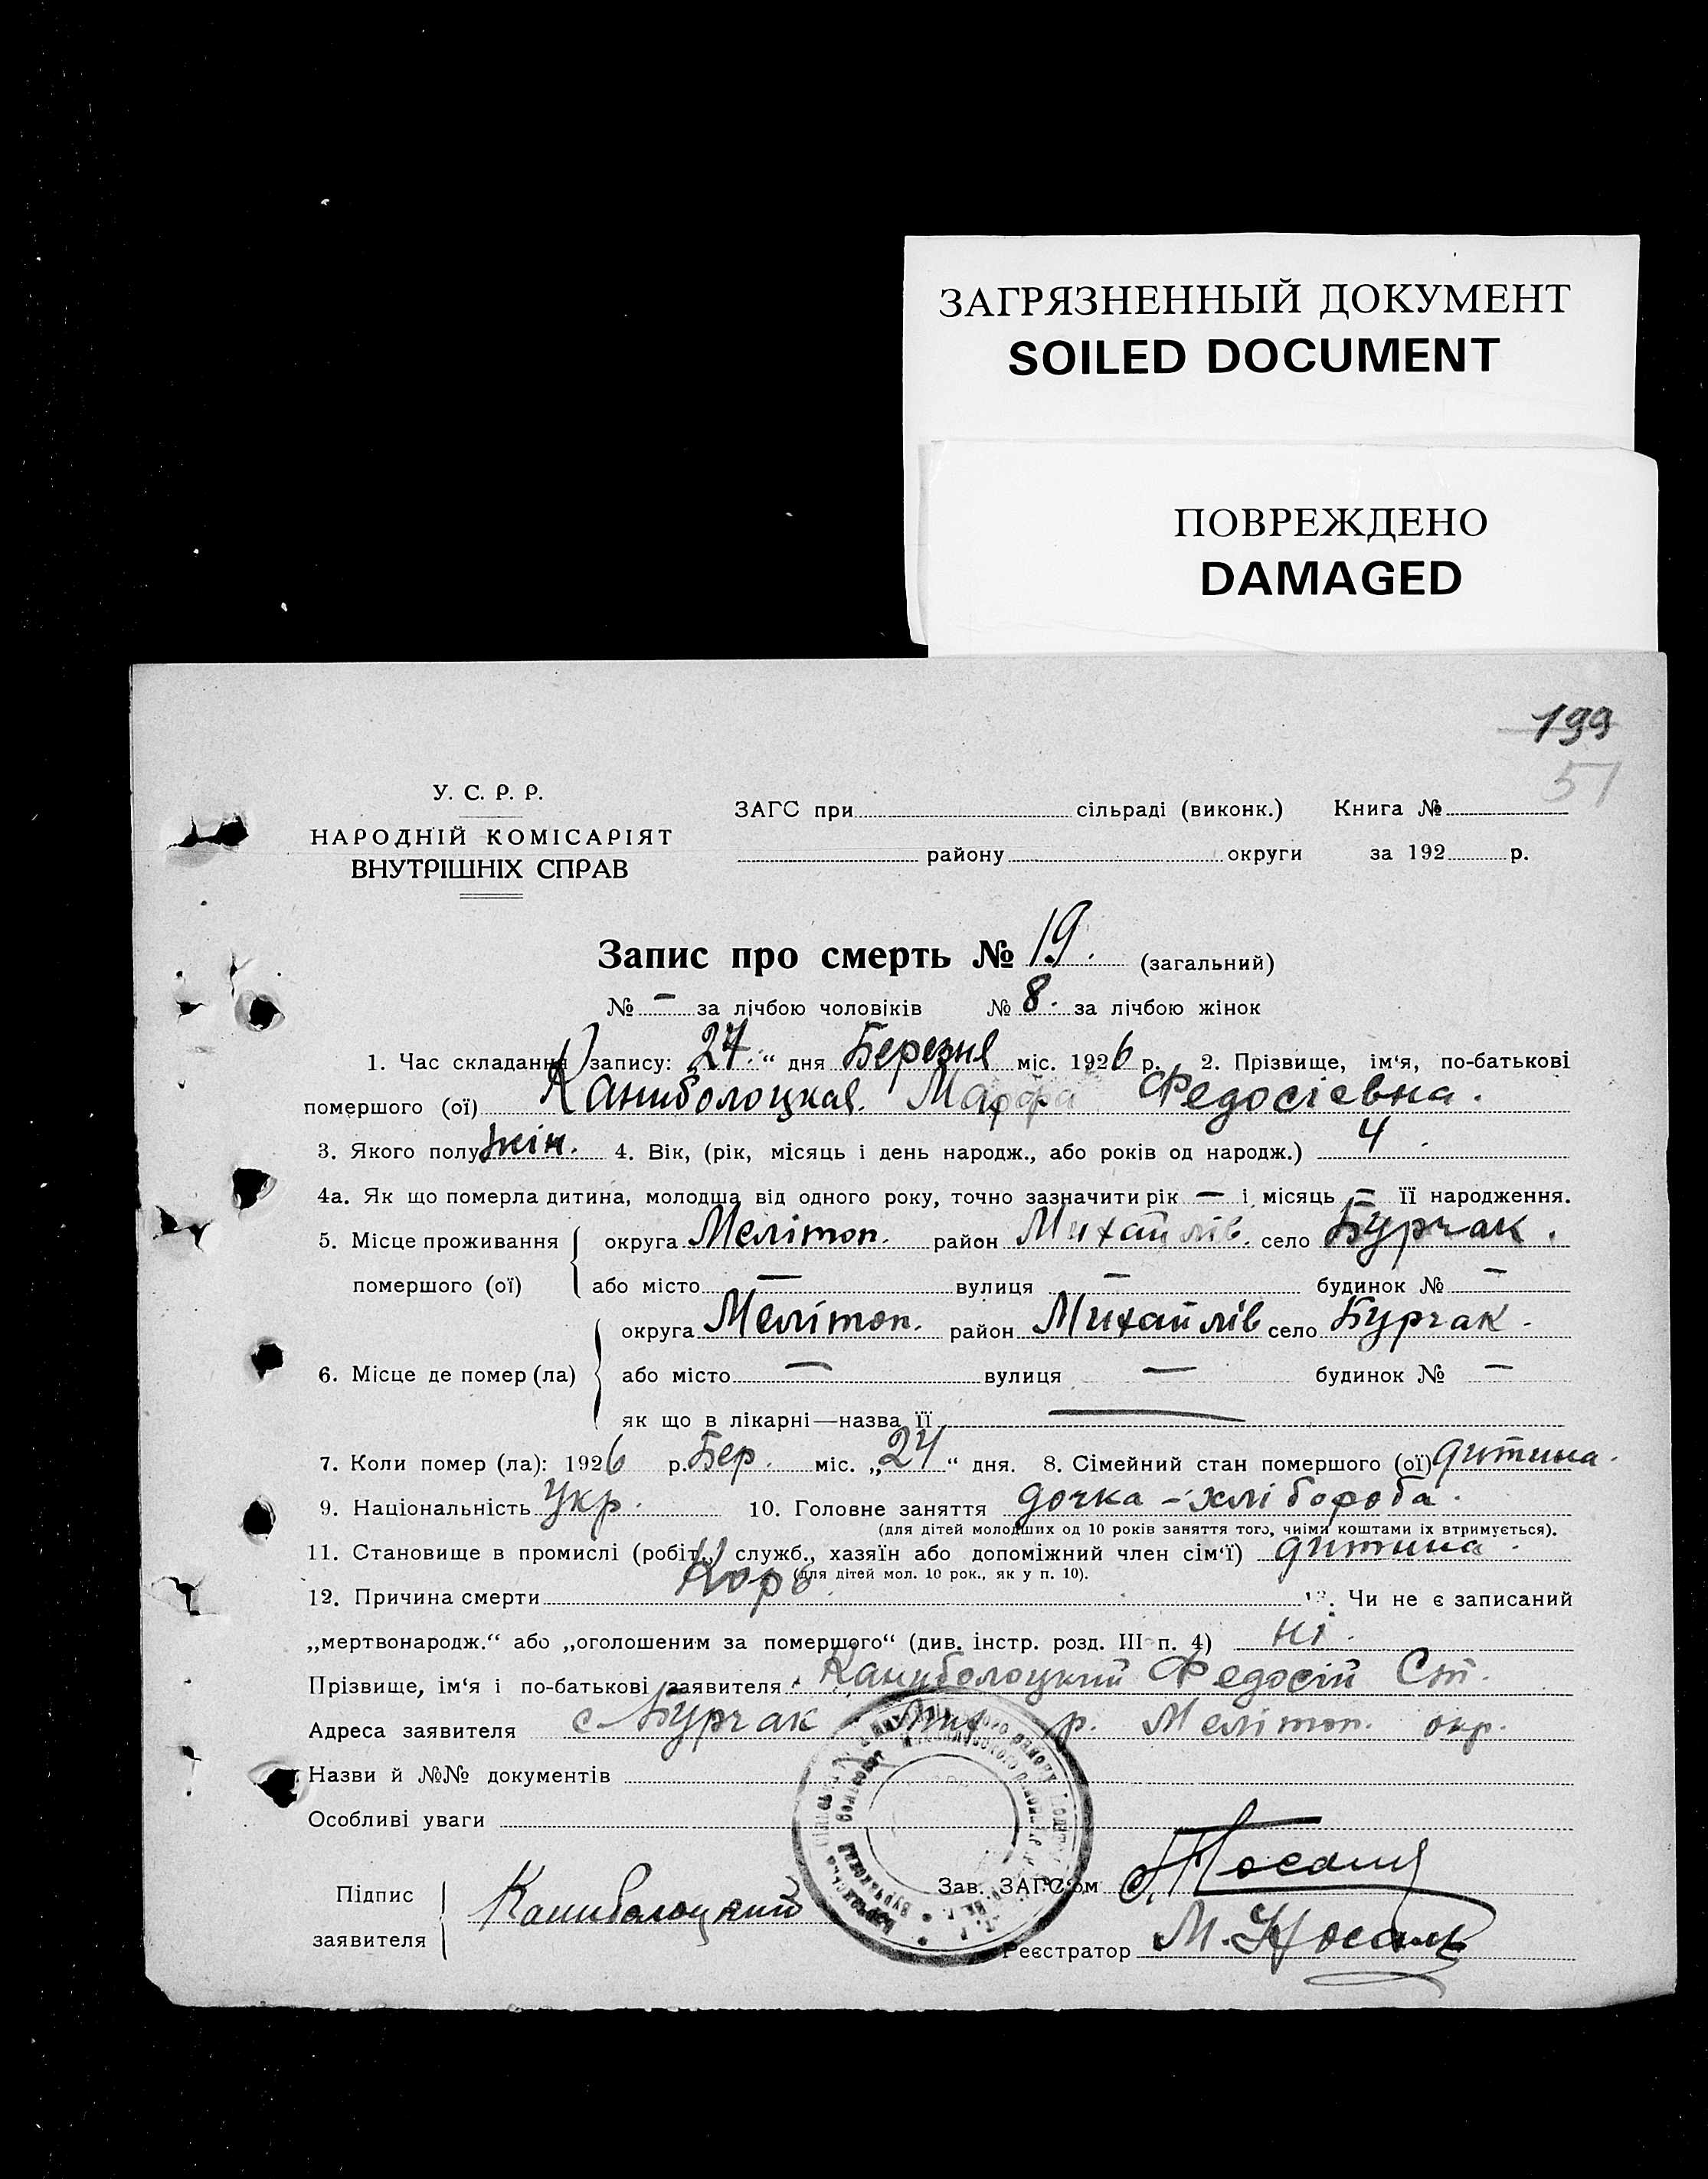 ЗАГРЯЗНЕННЫЙ ДОКУМЕНТ
SOILED DOCUMENT
ПОВРЕЖДЕНО
DAMAGED
199
51
У. С. Р. Р.
НАРОДНІЙ КОМІСАРІЯТ
ВНУТРІШНІХ СПРАВ
ЗАГС при сільраді (виконк.) Книга №
району округи за 192 р.
Запис про смерть № 19. (загальний)
№ — за лічбою чоловіків № 8. за лічбою жінок
1. Час складання запису: 27. “ дня Березня міс. 1926 р. 2. Прізвище, ім‘я, по-батькові
помершого (ої) Каниболоцкая. Марфа Федосієвна.
3. Якого полу жін. 4. Вік, (рік, місяць і день народж., або років од народж.) 4.
4а. Як що померла дитина, молодша від одного року, точно зазначити рік — і місяць — її народження.
5. Місце проживання округа Мелітоп. район Михайлів. село Бурчак.
помершого (ої) або місто — вулиця — будинок № —
округа Мелітоп. район Михайлів село Бурчак.
6. Місце де помер (ла) або місто — вулиця — будинок № —
як що в лікарні—назва її —
7. Коли помер (ла): 1926 р. Бер. міс. „24“ дня. 8. Сімейний стан помершого (ої) дитина.
9. Національність Укр. 10. Головне заняття дочка - хлібороба.
(для дітей молодших од 10 років заняття того, чиїми коштами їх втримується).
11. Становище в промислі (робіт., служб., хазяїн або допоміжний член сім‘ї) дитина.
(для дітей мол. 10 рок., як у п. 10).
12. Причина смерти Корь 13. Чи не є записаний
„мертвонародж.“ або „оголошеним за помершого“ (див. інстр. розд. III п. 4) ні.
Прізвище, ім‘я і по-батькові заявителя Каниболоцкий Федосій Ст.
Адреса заявителя с. Бурчак Мих. р. Мелітоп. окр.
Назви й №№ документів
Особливі уваги
Підпис
заявителя Каниболоцкий
Зав. ЗАГС‘ом Носань
Реєстратор М. Носань